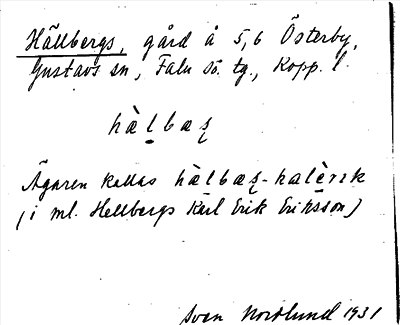 Hällbergs, gård å 5,6 Österby,
Gustavs sn, Falu sö. tg., Kopp. l.
hàl̠bæʂ
Ägaren kallas hàl̠bæʂ-kalèrɪk
(i ml. Hellbergs Karl Erik Eriksson)
Sven Norlund 1931